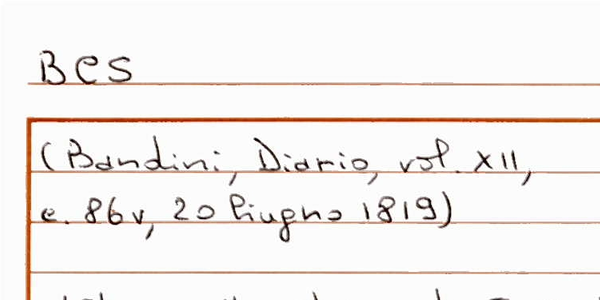 BCS
(Bandini, Diario, vol. XII,
c. 86v, 20 Giugno 1819)